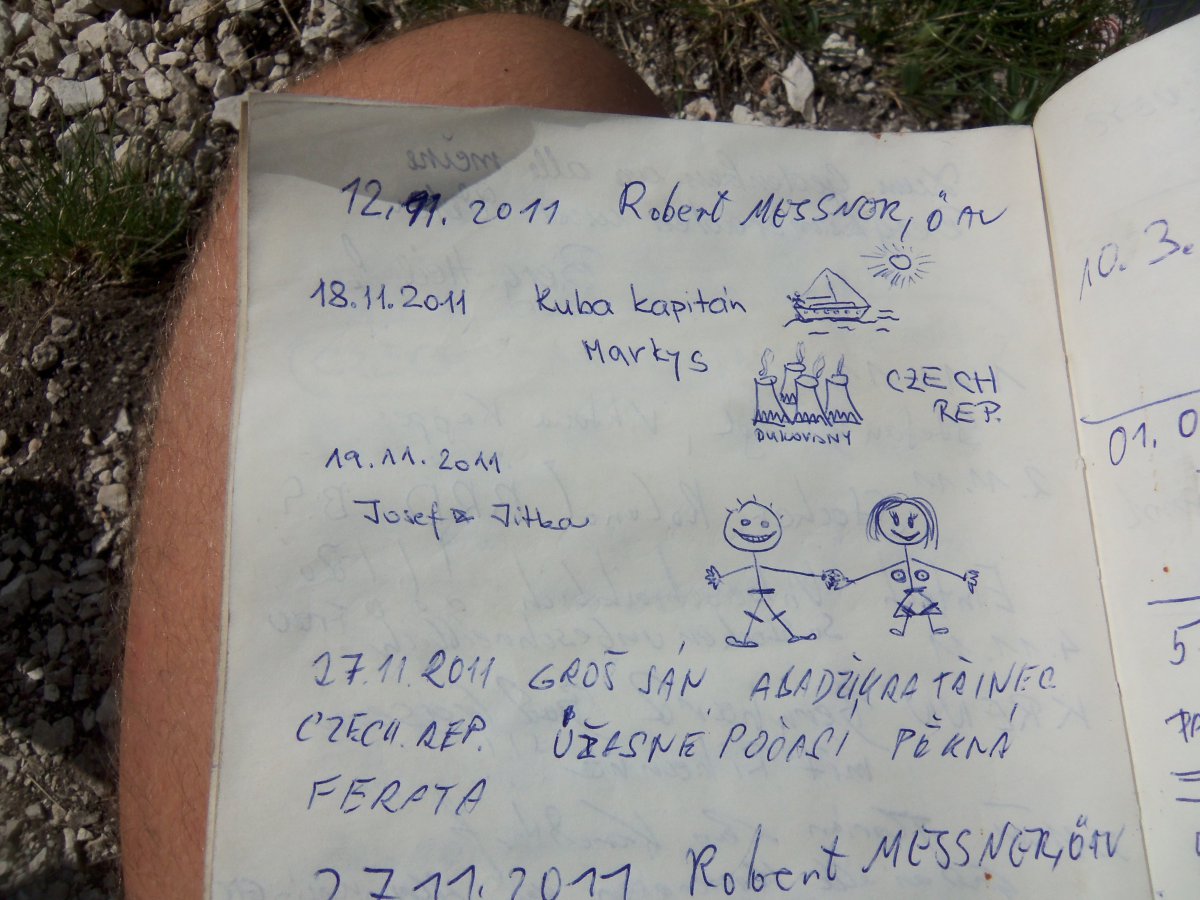 12. 11. 2011 Robert MESSNER, ÖAV
18.11.2011 Kuba kapitán
Markys
CZECH
REP.
DUKOVANY
19.11.2011
Josef & Jitka
27.11.2011 GROŠ JÁN, TŘINEC
CZECH. REP. ÚŽASNÉ POČASÍ, PĚKNÁ
FERATA
27.11.2011 Robert MESSNER, ÖAV
10. 3.
01. 0
5